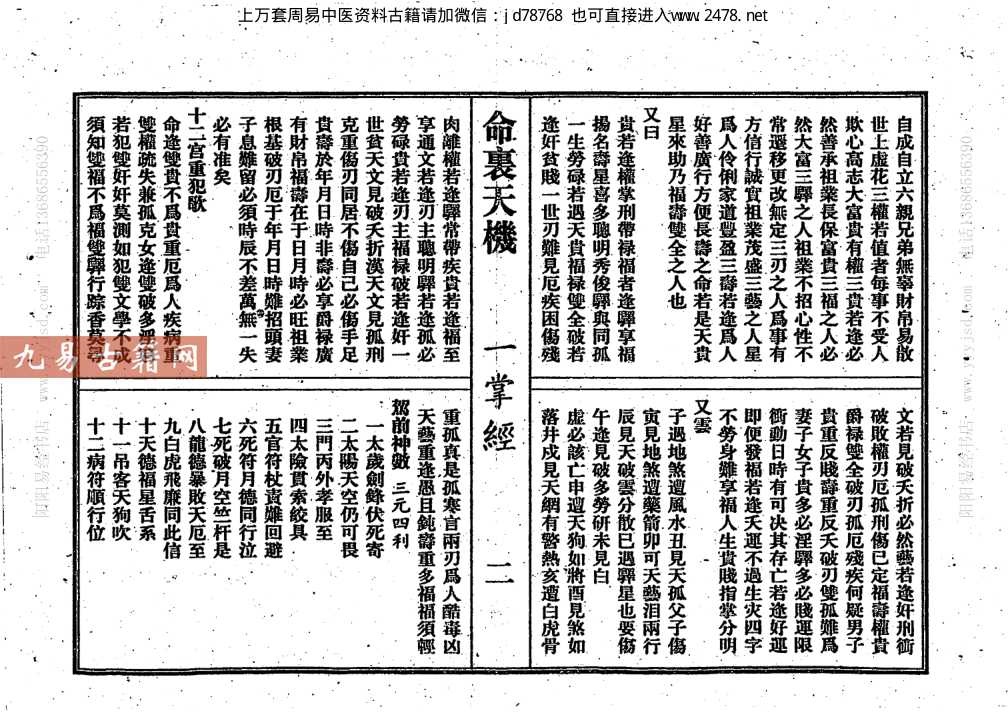 上万套周易中医资料古籍请加微信：jd78768 也可直接进入www.2478.net
自成自立六親兄弟無辜財帛易散
世上虛花三權若值者每事不受人
欺心高志大富貴有權三貴若逢必
然善承祖業長保富貴三福之人必
然大富三驛之人祖業不招心性不
常遷移更改無定三刃之人爲事有
方信行誠實祖業茂盛三藝之人星
爲人伶俐家道豐盈三壽若逢爲人
好善廣行方便長壽之命若是天貴
星來助乃福壽雙全之人也
又曰
貴若逢權掌刑帶禄福者逢驛享福
揚名壽星喜多聰明秀俊驛與同孤
一生勞碌若遇天貴福禄雙全破若
逢奸貧賤一世刃難見厄疾困傷殘
文若見破夭折必然藝若逢奸刑衝
破敗權刃厄孤刑傷已定福壽權貴
爵禄雙全破刃孤厄殘疾何疑男子
貴重反賤壽重反夭破刃雙孤難爲
妻子女子貴多必淫驛多必賤運限
衝動日時有可决其存亡若逢好運
即便發福若逢夭運不過生灾四字
不勞身難享福人生貴賤指掌分明
又雲
子遇地煞遭風水丑見天孤父子傷
寅見地煞遭藥箭卯可天藝泪兩行
辰見天破雲分散巳遇驛星也要傷
午逢見破多勞研未見白
虛必該亡申遭天狗如將酉見煞如
落井戍見天網有警熱亥遭白虎骨
命裏天機
一掌經
二
肉離權若逢驛常帶疾貴若逢福至
享通文若逢刃主聰明驛若逢孤必
勞碌貴若逢刃主福禄破若逢奸一
世貧天文見破夭折漢天文見孤刑
克重傷刃同居不傷自己必傷手足
貴壽於年月日時非壽必享爵禄廣
有財帛福壽在于日月時必旺祖業
根基破刃厄于年月日時難招頭妻
子息難留必須時辰不差萬無一失
必有准矣
十二宮重犯歌
命逢雙貴不爲貴重厄爲人疾病重
雙權疏失兼孤克女逢雙破多淫
若犯雙奸奸莫測如犯雙文學不成
須知雙福不爲福雙驛行踪香莫尋
重孤真是孤寒言兩刃爲人酷毒凶
天藝重逢愚且鈍壽重多福福須輕
駕前神數　三元四利
一太歲劍鋒伏死寄
二太陽天空仍可畏
三門丙外孝服至
四太險貫索絞具
五官符杖責難回避
六死符月德同行泣
七死破月空竺杆是
八龍德暴敗天厄至
九白虎飛廉同此信
十天德福星舌系
十一吊客天狗吹
十二病符順行位
九易古籍网
阳阳易经书店
电话13686556390